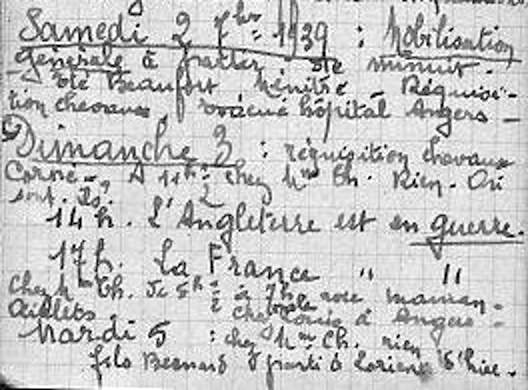 Samedi 2 7bre 1939 : Mobilisation
générale à partir de minuit.
été Beaufort Ménitré - Réquisi-
tion chevaux, évacué hôpital Angers -
Dimanche 3 : réquisition chevaux
Corné - A 11h 1/2 chez Mme Ch. Rien. Où
sont-ils?
14h. L'Angleterre est en guerre.
17h. La France " "
Chez Mme Ch. de 5h 1/2 à 7h avec maman.
Mardi 5 : chez Mme Ch. rien
fils Bernard parti à Lorient